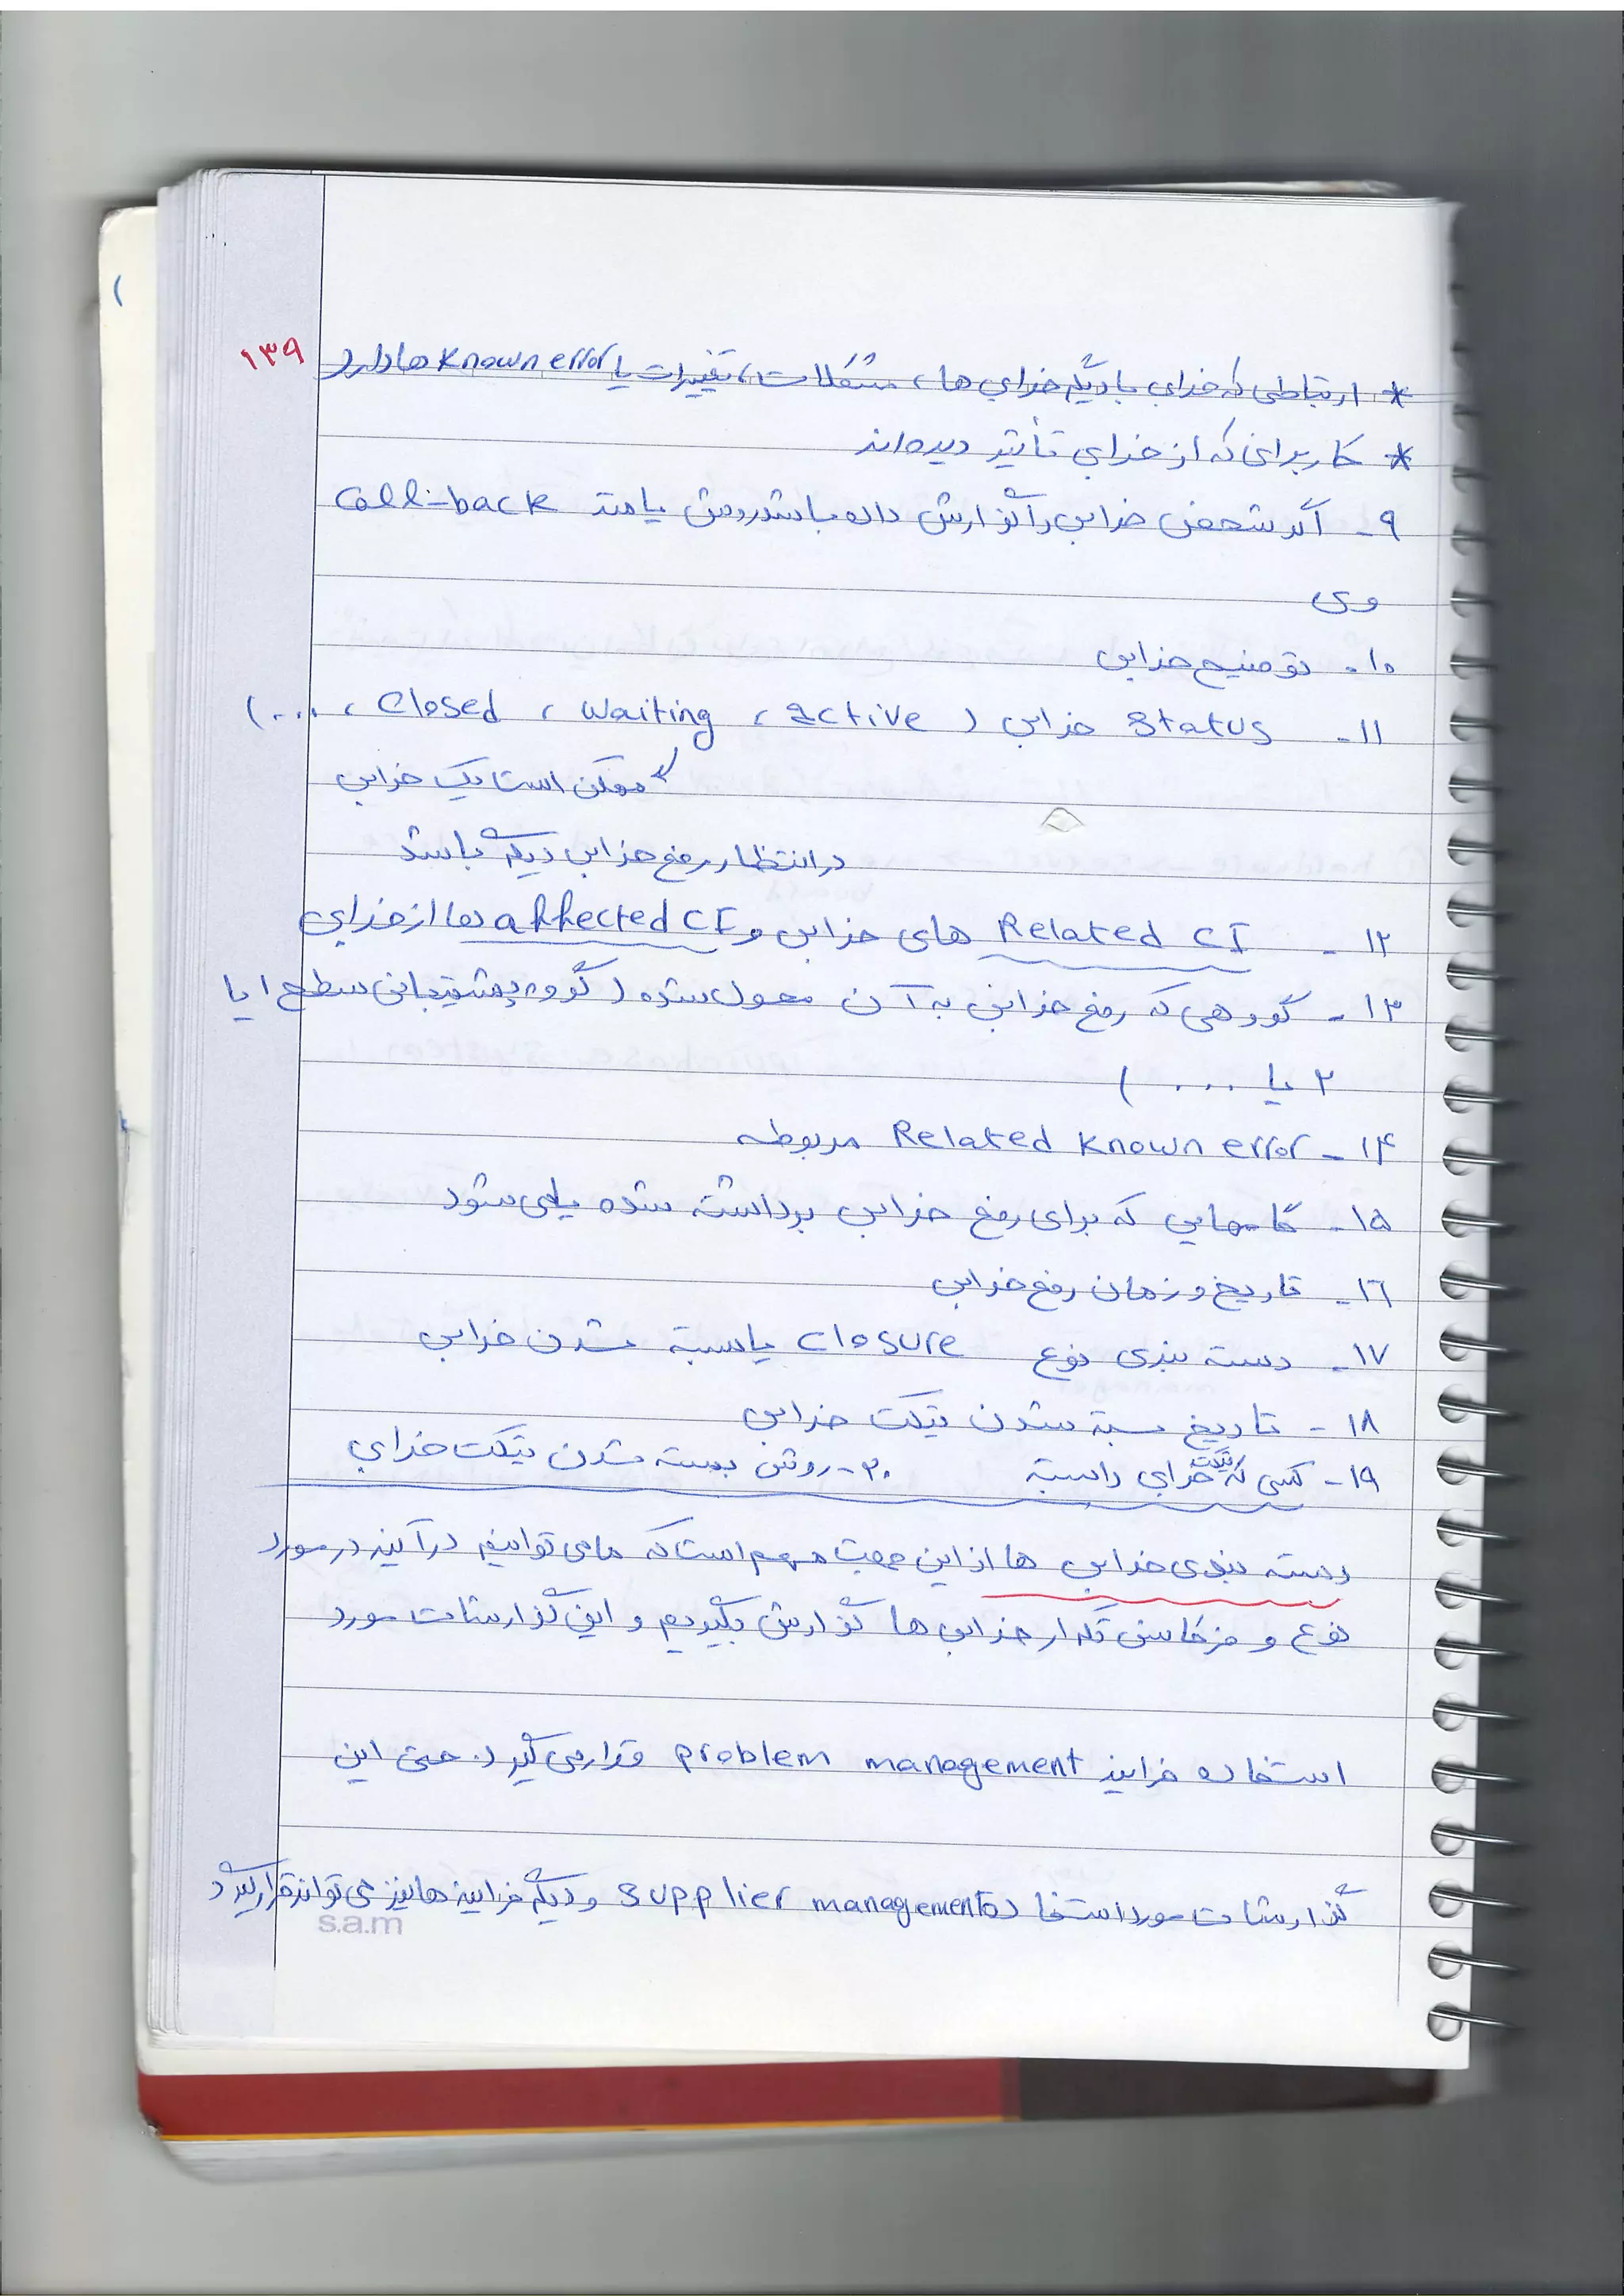 ۱۳۹
* ارتباطی که خرابی با دیگر خرابی ها، مشکلات، تغییرات یا Known error ها دارد
* کاربرانی که از خرابی تأثیر دیده‌اند
۹- اگر شخص خرابی را گزارش داده باشد روش یافتن Call-back
وی
۱۰- توضیح خرابی
۱۱- Status خرابی (active ، waiting ، closed ، ...)
ممکن است یک خرابی
در انتظار رفع خرابی دیگر باشد
۱۲- Related CI های خرابی و affected CI ها از خرابی
۱۳- گروهی که رفع خرابی به آن محول شده (گروه پشتیبانی سطح ۱ یا
۲ یا ....)
۱۴- Related Known error مربوطه
۱۵- گامهایی که برای رفع خرابی برداشته شده یا می شود
۱۶- تاریخ و زمان رفع خرابی
۱۷- دسته بندی نوع closure یا بسته شدن خرابی
۱۸- تاریخ بسته شدن تیکت خرابی
۱۹- کسی که تیکت خرابی را بسته ۲۰- روش بسته شدن تیکت خرابی
دسته بندی خرابی ها از این جهت مهم است که ما می توانیم در آینده در مورد
نوع و فرکانس تکرار خرابی ها گزارش بگیریم و این گزارشات مورد
استفاده فرایند problem management قرار می گیرد. حتی این
گزارشات مورد استفاده supplier management و دیگر فرایند ها نیز می تواند قرار گیرد
s.a.m